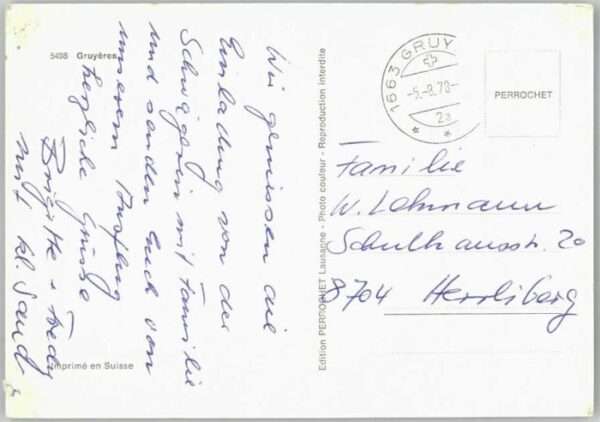 5498 Gruyères
Wir geniessen die
Einladung von der
Schwägerin mit Familie
und senden Euch von
unserem Ausflug
herzliche Grüsse
Brigitte + Fredy
mit kl. Sand
Imprimé en Suisse
Edition PERROCHET Lausanne - Photo couleur - Reproduction interdite
1663 GRUY
-5.-8.70-
2a
PERROCHET
Familie
W. Lehmann
Schulhausstr. 20
8704 Herrliberg